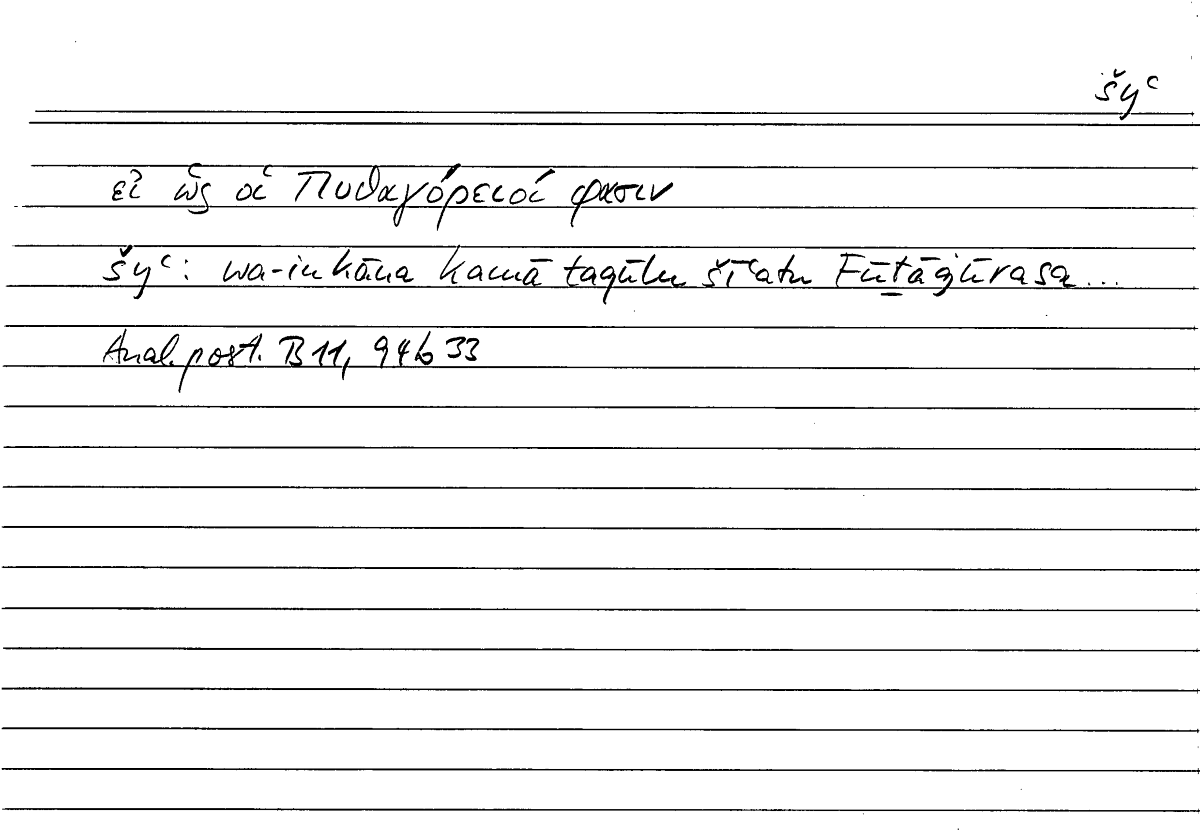 šyʿ
εἰ ὥς οἱ Πυθαγόρειοί φασιν
šyʿ: wa-in kāna kamā taqūlu šīʿatu Fūṯāġūrasa...
Anal. post. B 11, 94b 33